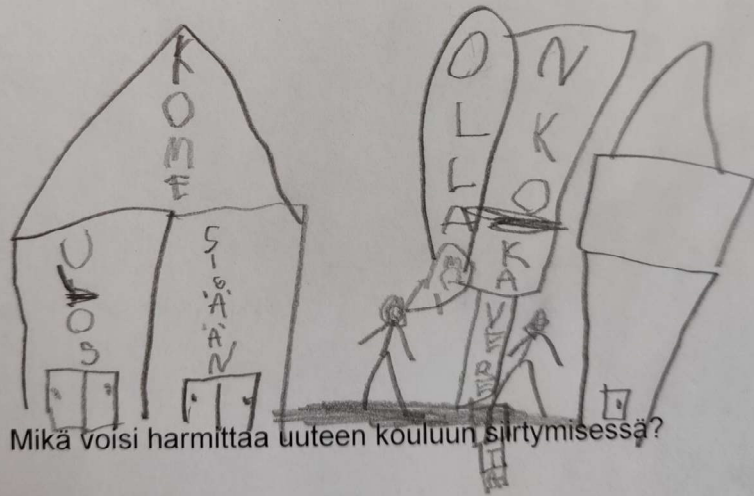 KOME
ULOS
SISÄÄN
OLLAA
NKO
KAVERE
Mikä voisi harmittaa uuteen kouluun siirtymisessä?